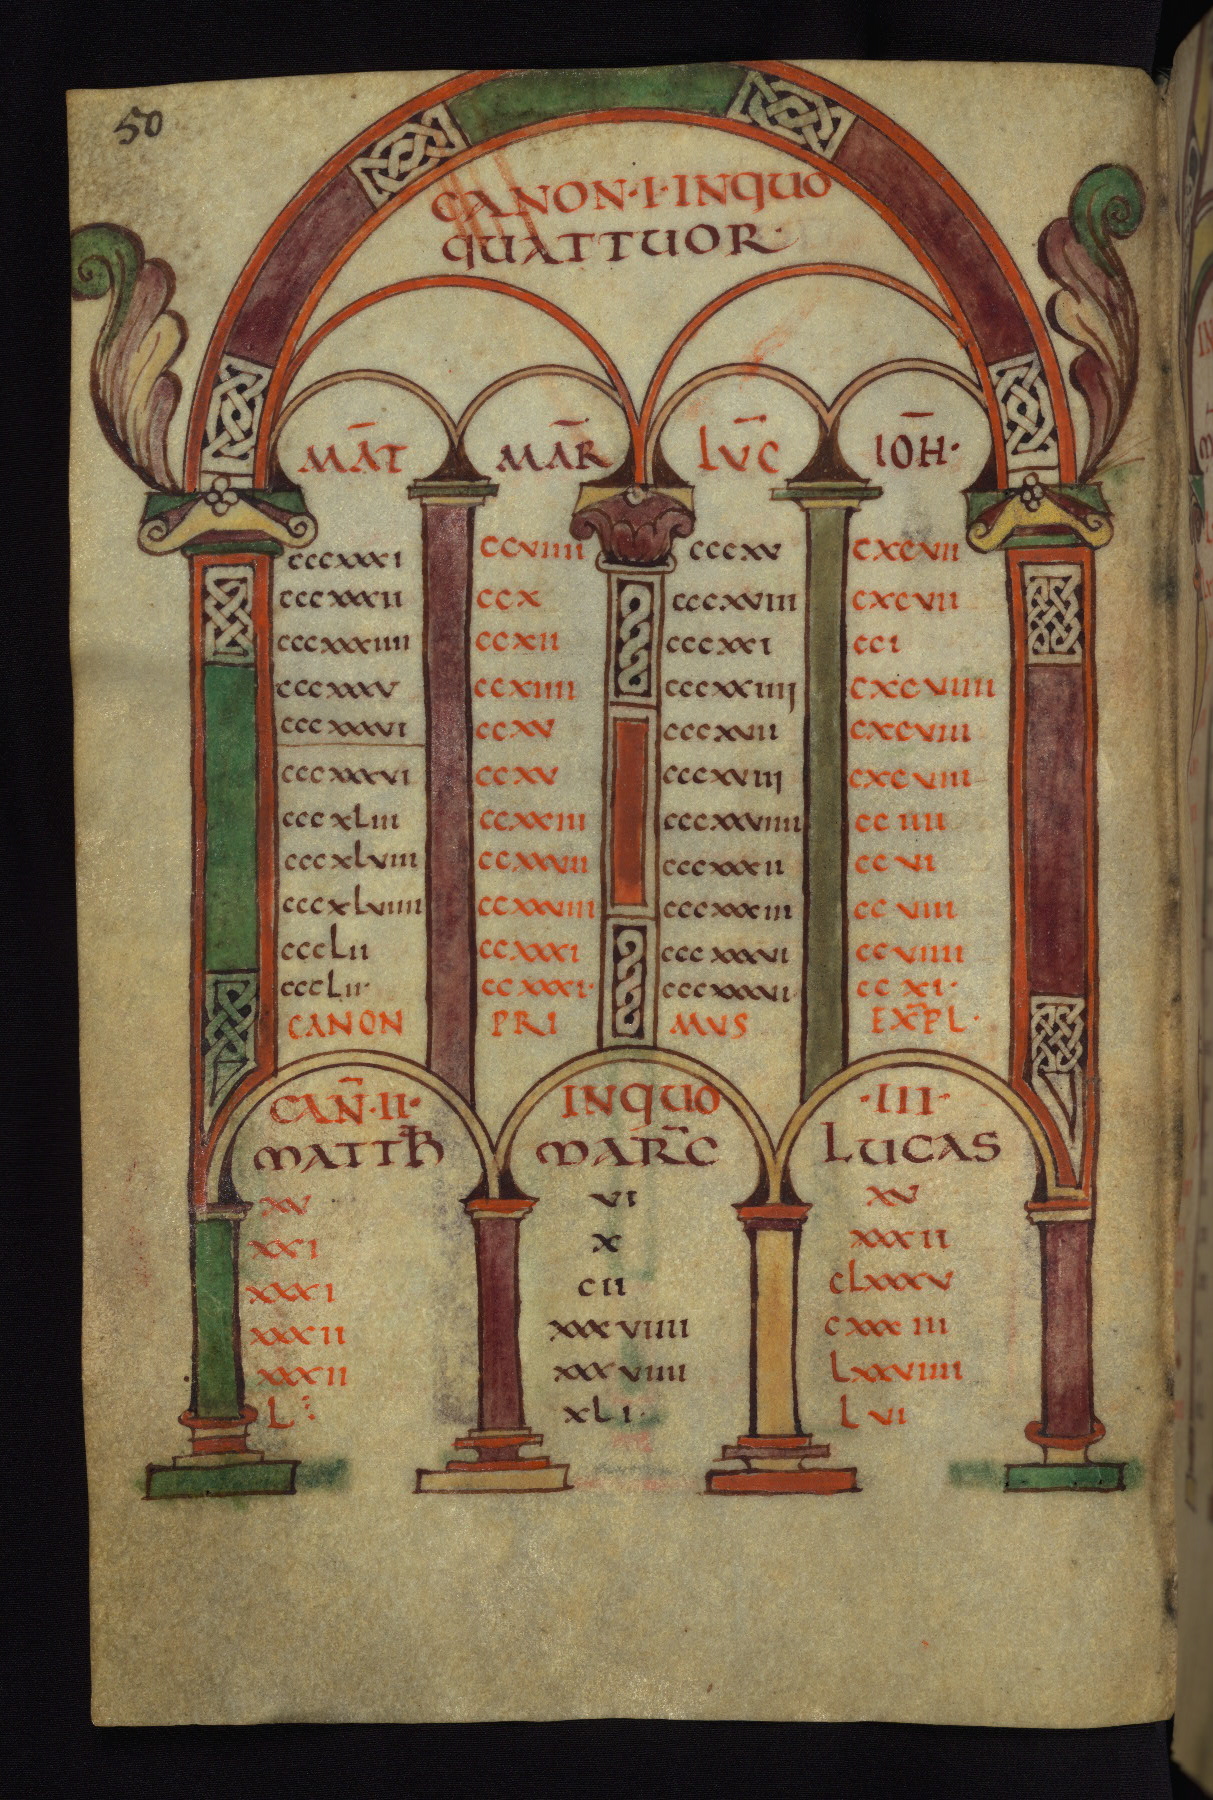 50
CANON·I·INQUO
QUATTUOR·
MA̅T MA̅R LV̅C IO̅H·
CCCXXXI CCVIIII CCCXV CXCVII
CCCXXXII CCX CCCXVIII CXCVII
CCCXXXIIII CCXII CCCXXI CCI
CCCXXXV CCXIIII CCCXXIIII CXCVIIII
CCCXXXVI CCXV CCCXVII CXCVIII
CCCXXXVI CCXV CCCXVIII CXCVIII
CCCXLIII CCXXIII CCCXXVIIII CCIIII
CCCXLVIII CCXXVII CCCXXXII CCVI
CCCXLVIIII CCXXVIII CCCXXXIII CCVIII
CCCLII CCXXXI CCCXXXVI CCVIIII
CCCLII· CCXXXI· CCCXXXVI· CCXI·
CANON PRI MUS EXPL·
CAN̅·II· INQUO ·III·
MATTH MARC LUCAS
XV VI XV
XXI X XXXII
XXXI CII CLXXXV
XXXII XXXVIIII CXXXIII
XXXII XXXVIIII LXXVIIII
L XLI· LVI